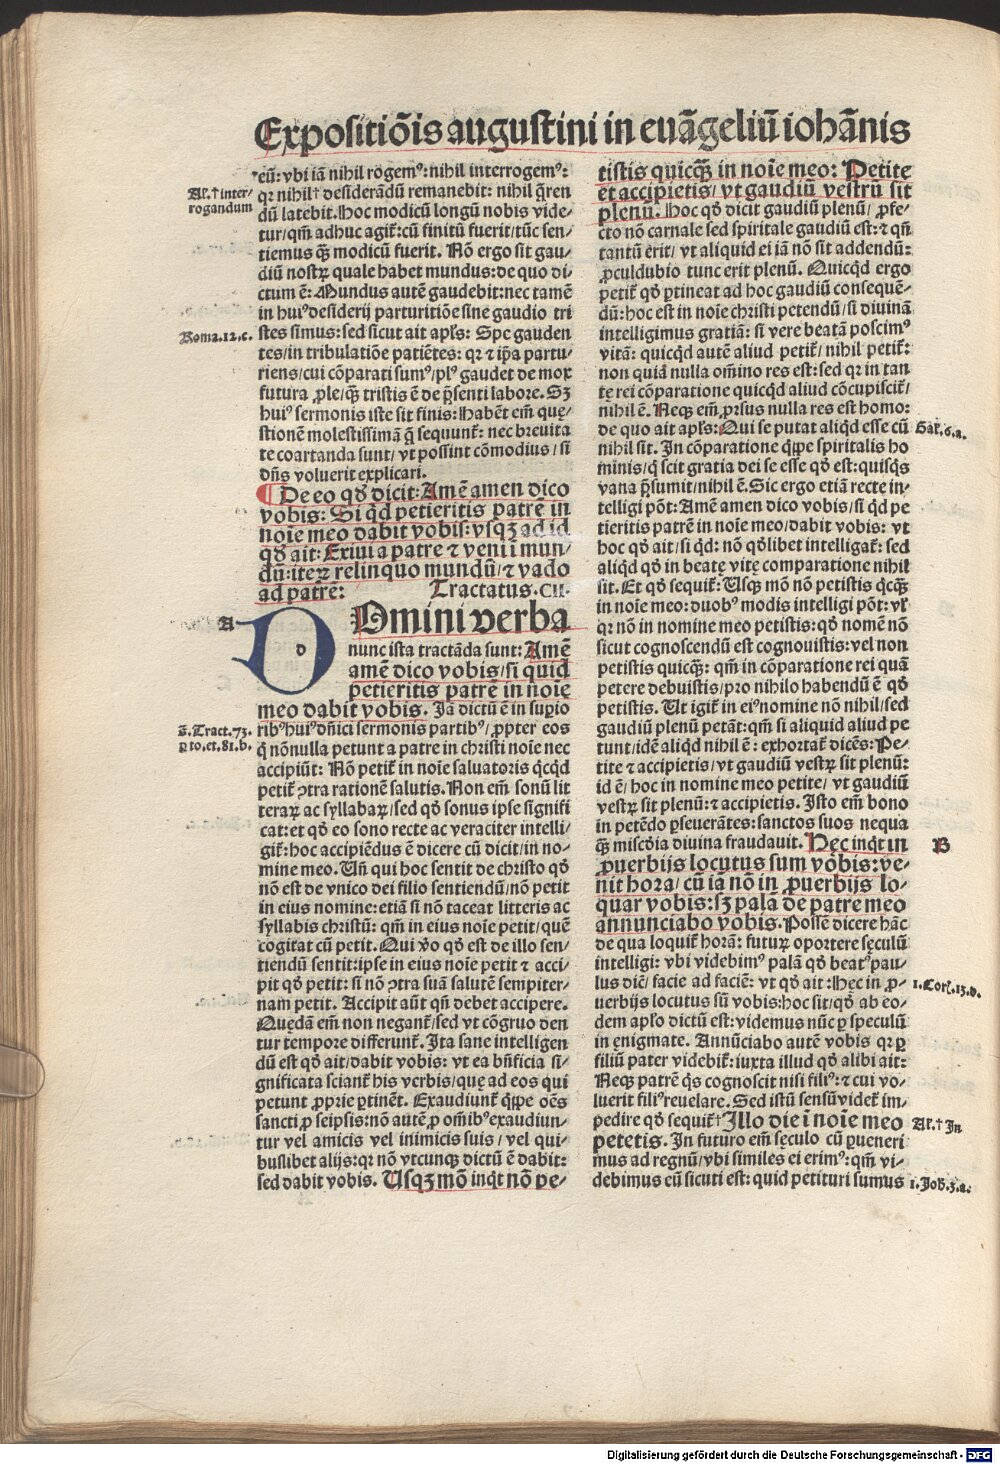 Expositiõis augustini in euãgeliũ iohãnis
eũ: vbi iã nihil rogemꝰ: nihil interrogemꝰ:
Al'.† inter/
rogandum
qꝛ nihil† desiderãdũ remanebit: nihil q̃ren
dũ latebit. Hoc modicũ longũ nobis vide/
tur/ qm̃ adhuc agit᷑: cũ finitũ fuerit/ tũc sen/
tiemus qꝫ̃ modicũ fuerit. Nõ ergo sit gau/
diũ nostrꝝ quale habet mundus: de quo di/
ctum ẽ: Mundus autẽ gaudebit: nec tamẽ
in huiꝰ desiderij parturitiõe sine gaudio tri
Roma.12.c.
stes simus: sed sicut ait apl's: Spe gauden
tes/ in tribulatiõe patiẽtes: qꝛ ⁊ ip̃a partu/
riens/ cui cõparati sumꝰ/ plꝰ gaudet de mox
futura ꝓle/ qꝫ̃ tristis ẽ de p̃senti labore. Sꝫ
huiꝰ sermonis iste sit finis: Habẽt em̃ quę/
stionẽ molestissimã q̃ sequunt᷑: nec breuita
te coartanda sunt/ vt possint cõmodius/ si
dñs voluerit explicari.
¶ De eo qď dicit: Amẽ amen dico
vobis: Si qd̓ petieritis patrẽ in
noĩe meo dabit vobis: vsqꝫ ad id
qď ait: Exiui a patre ⁊ veni ĩ mun/
dũ: iteꝝ relinquo mundũ/ ⁊ vado
ad patrẽ: Tractatus. CII.
A
DOmini verba
d
nunc ista tractãda sunt: Amẽ
amẽ dico vobis/ si quid
petieritis patrẽ in noĩe
meo dabit vobis. Jã dictũ ẽ in suꝑio
ã. Tract.73.
ꝑ to. et.81.b.
ribꝰ huiꝰ dñici sermonis partibꝰ/ ꝓpter eos
q̓ nõnulla petunt a patre in christi noĩe nec
accipiũt: Nõ petit᷑ in noĩe saluatoris qcq̓d
petit᷑ ꝯtra rationẽ salutis. Non em̃ sonũ lit
teraꝝ ac syllabaꝝ/ sed qď sonus ipse signifi
cat: et qď eo sono recte ac veraciter intelli/
git᷑: hoc accipiẽdus ẽ dicere cũ dicit/ in no/
mine meo. Vñ qui hoc sentit de christo qď
nõ est de vnico dei filio sentiendũ/ nõ petit
in eius nomine: etiã si nõ taceat litteris ac
syllabis christũ: qm̃ in eius noĩe petit/ quẽ
cogitat cũ petit. Qui ṽo qď est de illo sen/
tiendũ sentit: ipse in eius noĩe petit ⁊ acci/
pit qď petit: si nõ ꝯtra suã salutẽ sempiter/
nam petit. Accipit aũt qñ debet accipere.
Quędã em̃ non negant᷑/ sed vt cõgruo den
tur tempore differunt᷑. Ita sane intelligen
dũ est qď ait/ dabit vobis: vt ea bñficia si/
gnificata sciant᷑ his verbis/ quę ad eos qui
petunt ꝓprie ꝑtinẽt. Exaudiunt᷑ q̓ppe oẽs
sancti ꝓ seipsis: nõ autẽ ꝓ om̃ibꝰ exaudiun/
tur vel amicis vel inimicis suis/ vel qui/
buslibet alijs: qꝛ nõ vtcunqꝫ dictũ ẽ dabit:
sed dabit vobis. Vsqꝫ mõ inq̓t nõ pe/
tistis quicqꝫ̃ in noĩe meo: Petite
et accipietis/ vt gaudiũ vestrũ sit
plenũ. Hoc qď dicit gaudiũ plenũ/ ꝓfe/
cto nõ carnale sed spiritale gaudiũ est: ⁊ qñ
tantũ erit/ vt aliquid ei iã nõ sit addendũ:
ꝓculdubio tunc erit plenũ. Quicq̓d ergo
petit᷑ qď ꝑtineat ad hoc gaudiũ consequẽ/
dũ: hoc est in noĩe christi petendũ/ si diuinã
intelligimus gratiã: si vere beatã poscimꝰ
vitã: quicq̓d autẽ aliud petit᷑/ nihil petit᷑:
non quid nulla om̃ino res est: sed qꝛ in tan
tę rei cõparatione quicq̓d aliud cõcupiscit᷑/
nihil ẽ. Neqꝫ em̃ ꝓrsus nulla res est homo:
de quo ait apl's: Qui se putat aliq̓d esse cũ
Gal'.6.a.
nihil sit. In cõparatione q̓ppe spiritalis ho
minis/ q̓ scit gratia dei se esse qď est: quisq̓s
vana p̃sumit/ nihil ẽ. Sic ergo etiã recte in/
telligi põt: Amẽ amen dico vobis/ si q̓d pe
tieritis patrẽ in noĩe meo/ dabit vobis: vt
hoc qď ait/ si q̓d: nõ qďlibet intelligat᷑: sed
aliq̓d qď in beatę vitę comparatione nihil
sit. Et qď sequit᷑: Vsqꝫ mõ nõ petistis q̓cqꝫ̃
in noĩe meo: duobꝰ modis intelligi põt: vl'
qꝛ nõ in nomine meo petistis: qď nomẽ nõ
sicut cognoscendũ est cognouistis: vel non
petistis quicqꝫ̃: qm̃ in cõparatione rei quã
petere debuistis/ pro nihilo habendũ ẽ qď
petistis. Vt igit᷑ in eiꝰ nomine nõ nihil/ sed
gaudiũ plenũ petãt: qm̃ si aliquid aliud pe
tunt/ idẽ aliq̓d nihil ẽ: exhortat᷑ dicẽs: Pe/
tite ⁊ accipietis/ vt gaudiũ vestrꝝ sit plenũ:
id ẽ/ hoc in nomine meo petite/ vt gaudiũ
vestrꝝ sit plenũ: ⁊ accipietis. Isto em̃ bono
in petẽdo ꝑseuerãtes: sanctos suos nequa
qꝫ̃ misc̃dia diuina fraudauit. Hęc inq̓t in
B
ꝓuerbijs locutus sum vobis: ve/
nit hora/ cũ iã nõ in ꝓuerbijs lo/
quar vobis: sꝫ palã de patre meo
annunciabo vobis. Possẽ dicere hãc
de qua loquit᷑ horã: futurꝝ oportere sęculũ
intelligi: vbi videbimꝰ palã qď beatꝰ pau/
lus dic̃/ facie ad faciẽ: vt qď ait: Hęc in ꝓ/
1.Corĩ.13.d.
uerbijs locutus sũ vobis: hoc sit/ qď ab eo/
dem apl'o dictũ est: videmus nũc ꝑ speculũ
in enigmate. Annũciabo autẽ vobis qꝛ ꝑ
filiũ pater videbit᷑: iuxta illud qď alibi ait:
Neqꝫ patrẽ q̓s cognoscit nisi filiꝰ: ⁊ cui vo/
luerit filiꝰ reuelare. Sed istũ sensũ videt᷑ im/
pedire qď sequit᷑† Illo die ĩ noĩe meo
Al'.† In
petetis. In futuro em̃ sęculo cũ ꝑueneri
mus ad regnũ/ vbi similes ei erimꝰ: qm̃ vi/
debimus eũ sicuti est: quid petituri sumus
1.Joh̃.3.a.
Digitalisierung gefördert durch die Deutsche Forschungsgemeinschaft - DFG